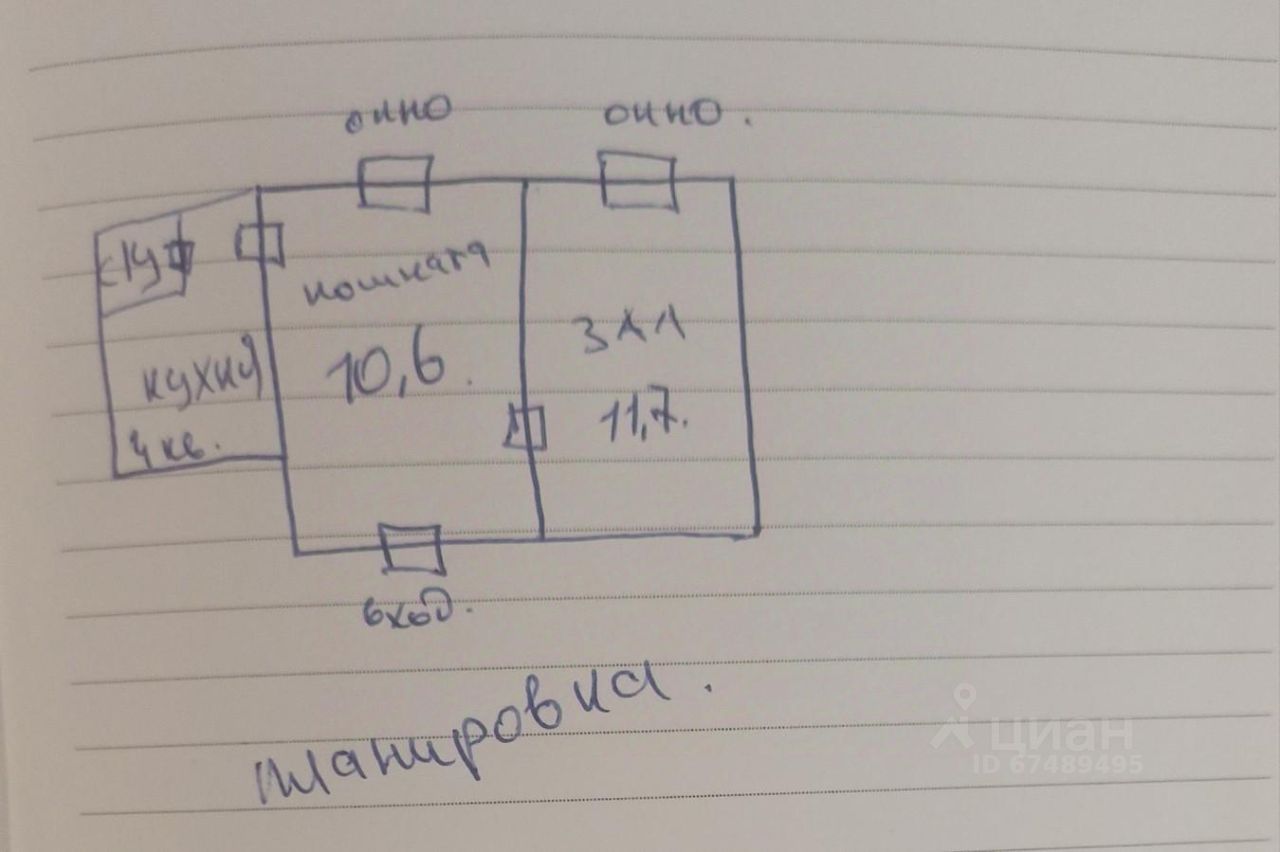 окно
окно.
с/у
комната
зал
10,6.
кухня
11,7.
4 кв.
вход.
планировка.
циан
ID 67489495